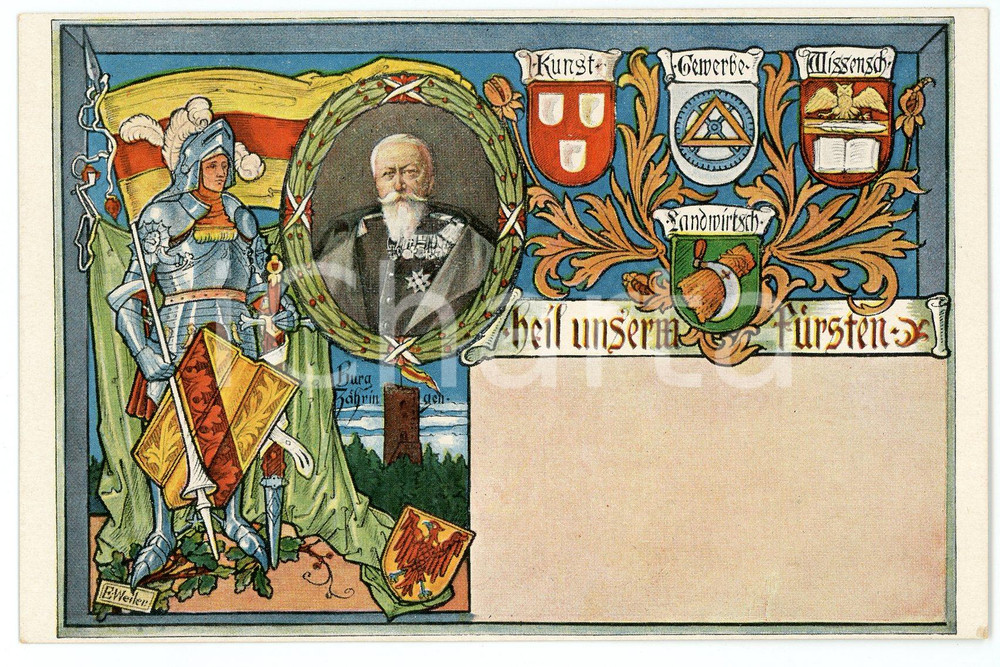 ·Kunst·
·Gewerbe·
·Wissensch·
·Landwirtsch·
·heil unserm fürsten·
Burg
Zährin gen·
E.Weiler.
iCharta